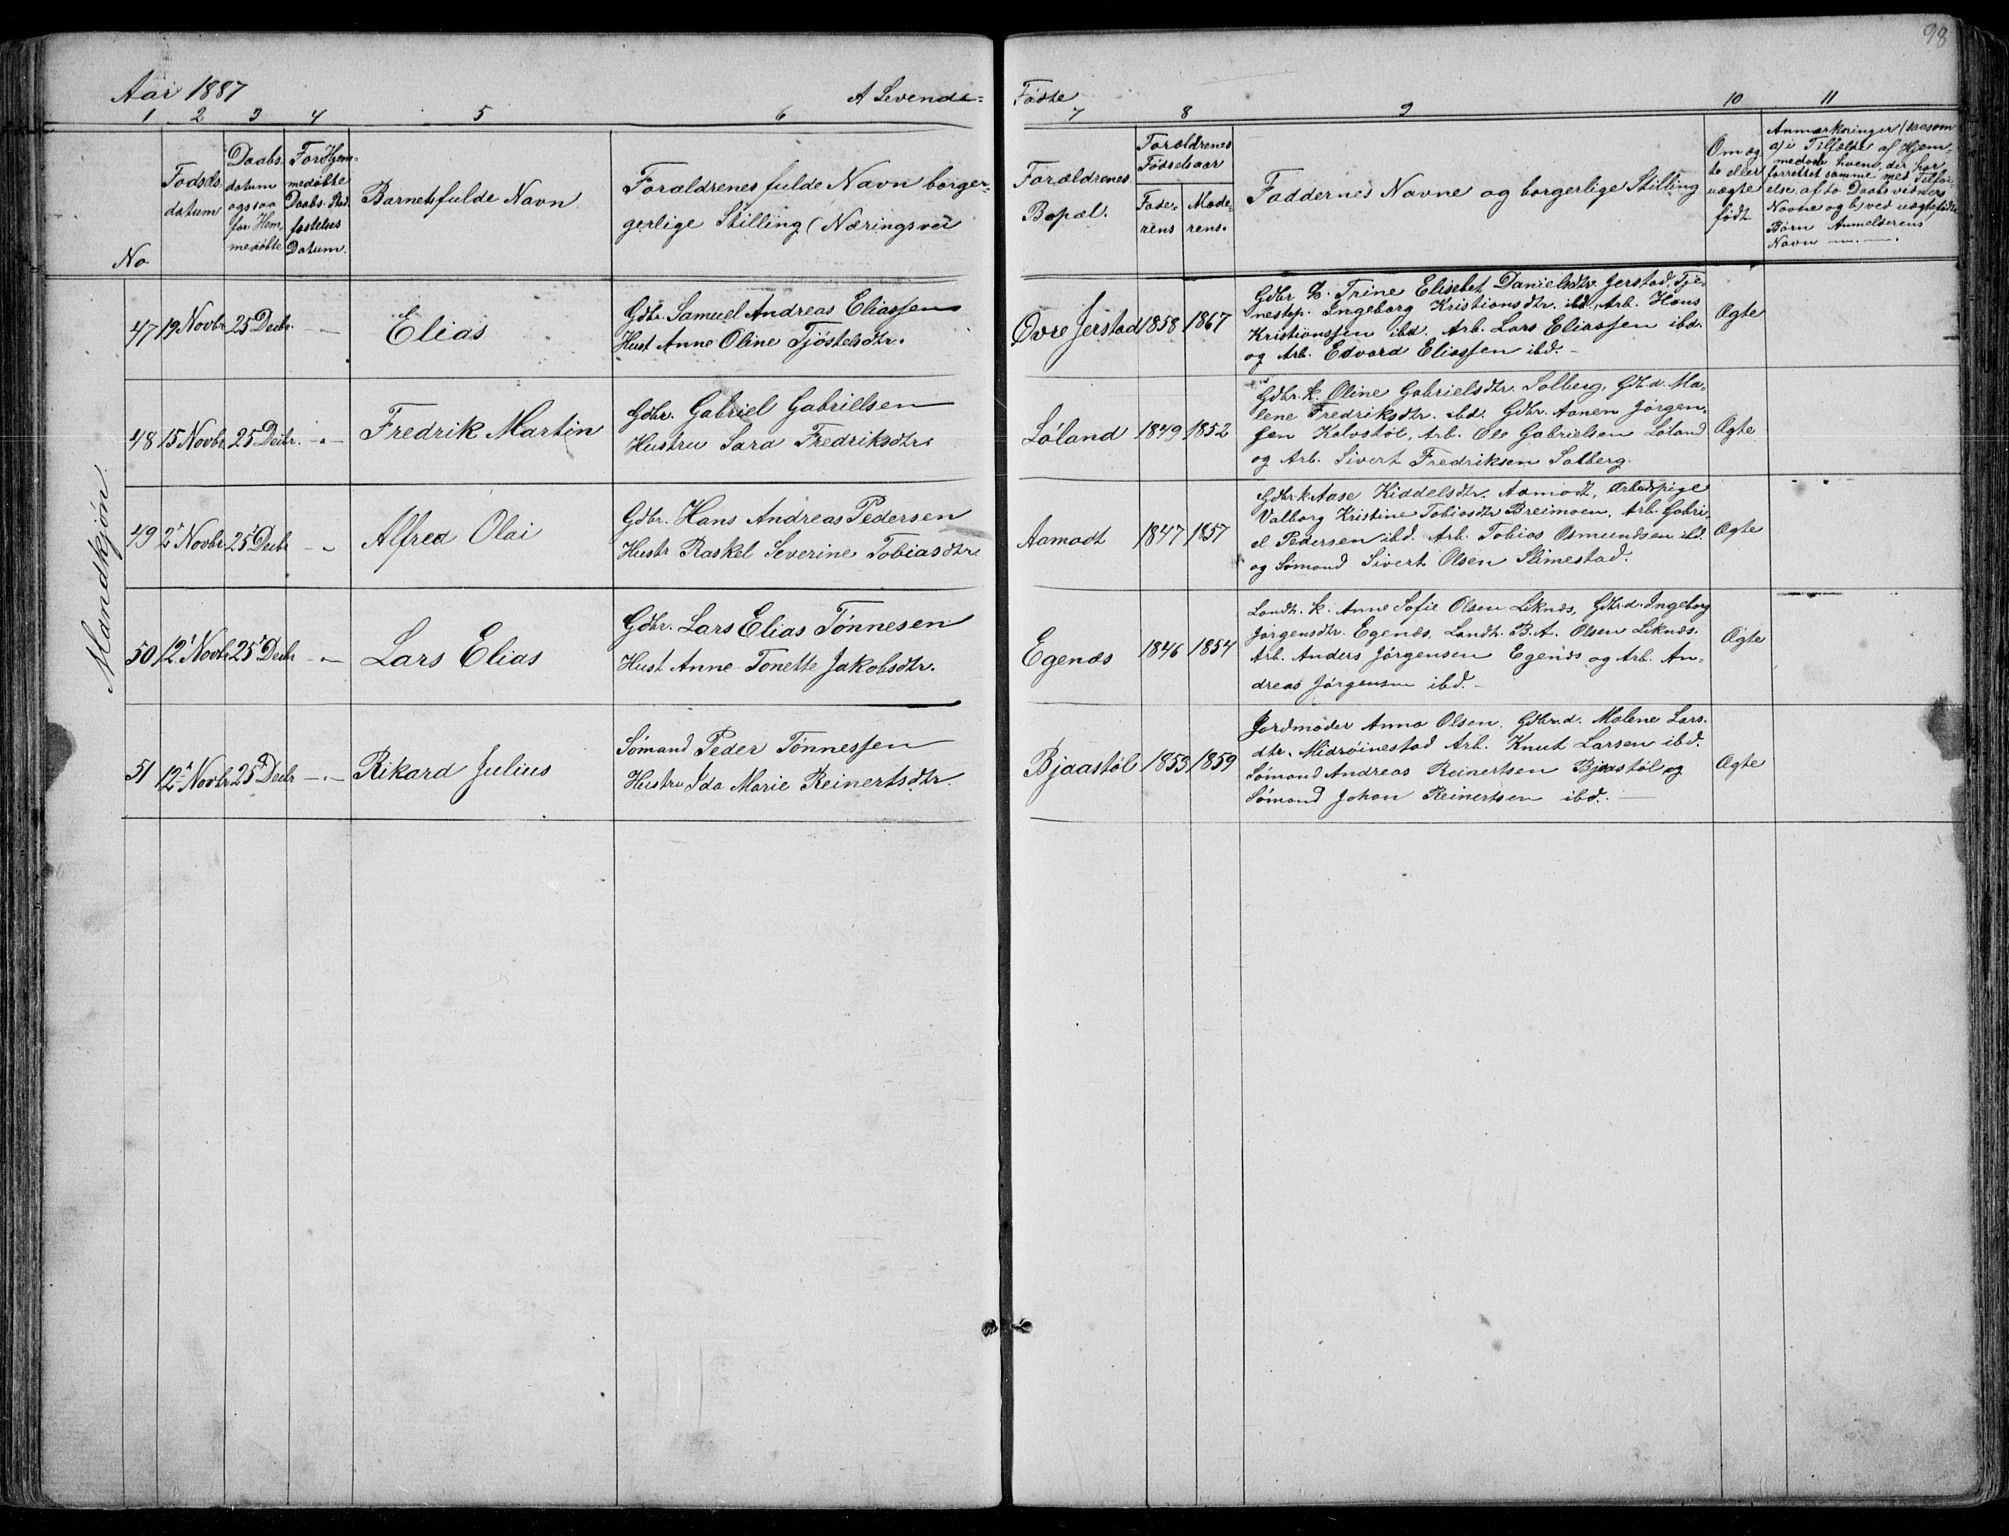 98
Aar 1887
A Levende=
Fødte
1 2 3 4 5 6
7 8 9 10 11
No
Fødsels
datum
Daabs.
datum
ogsaa
for Hjem
medøbte
For Hjem-
medøbte
Daabs Stad
fæstelses
Datum.
Barnets fulde Navn
Forældrenes fulde Navn borger-
gerlige Stilling (Næringsvei
Forældrenes
Bopæl.
Forældrenes
Fødselsaar
Fade-
rens
Mode-
rens.
Faddernes Navne og borgerlige Stilling
Om æg
te eller
uægte
født
Anmærkninger (saasom
a) i Tilfælde af Hjem-
medaab hvem der har
forrettet samme med Tilføi-
else af to Daabsvidners
Navne og b) ved uægtefødte
Børn Anmelderens
Navn
Mandkjøn.
47 19 Novbr 25 Decbr. Elias
Gdbr. Samuel Andreas Eliassen
Hust Anne Oline Tjøstelsdtr.
Øvre Jerstad 1858 1867
Gdbr k. Trine Elisebet Danielsdtr Jerstad, Tje-
nestep. Ingeborg Kristiansdtr. ibd, Arb. Hans
Kristianssen ibd. Arb. Lars Eliassen ibd.
og Arb. Edvard Eliassen ibd.
Ægte
48 15 Novbr 25 Decbr. Fredrik Martin
Gdbr. Gabriel Gabrielsen
Hustru Sara Fredriksdtr.
Løland 1849 1852
Gdbr. k. Oline Gabrielsdtr. Solberg, Gdb.d. Ma-
lene Fredriksdtr. ibd. Gdbr. Aanen Jørgen-
sen Kalvstøl, Arb. Ole Gabrielsen Løland
og Arb. Sivert Fredriksen Solberg.
Ægte
49 2 Novbr 25 Decbr Alfred Olai
Gdbr. Hans Andreas Pedersen
Hustr Raskel Severine Tobiasdtr.
Aamodt 1847 1857
Gdbr k. Aase Kiddelsdtr. Aamodt, Arbeidspige
Valborg Kristine Tobiasdtr Breimoen, Arb. Gabri-
el Pedersen ibd. Arb. Tobias Osmundsen ibd.
og Sømand Sivert Olsen Stimestad.
Ægte
50 12 Novbr 25 Decbr Lars Elias
Gdbr. Lars Elias Tønnesen
Hust Anne Tonette Jakobsdtr.
Egenæs 1846 1854
Landh. k. Anne Sofie Olsen Liknæs, Gdbr.d. Ingeborg
Jørgensdtr. Egenæs, Landh. B. A. Olsen Liknæs.
Arb. Anders Jørgensen Egenæs og Arb. An-
dreas Jørgensen ibd.
Ægte
51 12 Novbr 25 Decbr Rikard Julius
Sømand Peder Tønnessen
Hustru Ida Marie Reinertsdtr.
Bjaastøl 1853 1859
Jordmoder Anna Olsen, Gdbr.d. Malene Lars-
dtr. Midrøinestad Arb. Knut Larsen ibd.
Sømand Andreas Reinertsen Bjaastøl og
Sømand Johan Reinertsen ibd.
Ægte